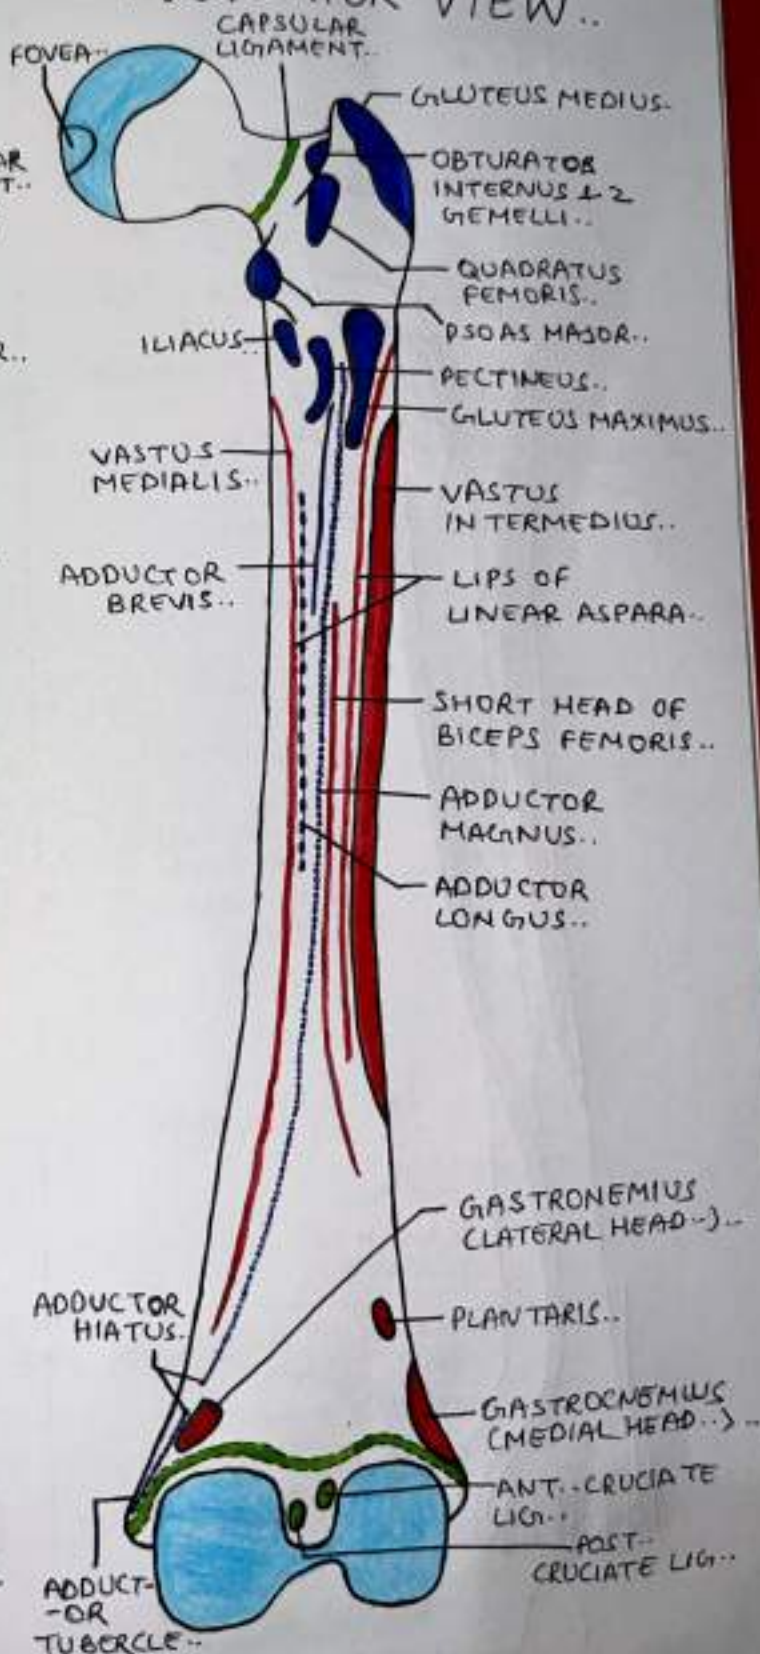 VIEW..
CAPSULAR
LIGAMENT..
FOVEA..
GLUTEUS MEDIUS..
AR
T..
OBTURATOR
INTERNUS & 2
GEMELLI..
QUADRATUS
FEMORIS..
PSOAS MAJOR..
ILIACUS..
R..
PECTINEUS..
GLUTEUS MAXIMUS..
VASTUS
MEDIALIS..
VASTUS
INTERMEDIUS..
ADDUCTOR
BREVIS..
LIPS OF
LINEAR ASPARA..
SHORT HEAD OF
BICEPS FEMORIS..
ADDUCTOR
MAGNUS..
ADDUCTOR
LONGUS..
GASTRONEMIUS
(LATERAL HEAD..)..
ADDUCTOR
HIATUS.
PLANTARIS..
GASTROCNEMIUS
(MEDIAL HEAD..)..
ANT..CRUCIATE
LIG..
POST..
CRUCIATE LIG..
ADDUCT-
-OR
TUBERCLE..